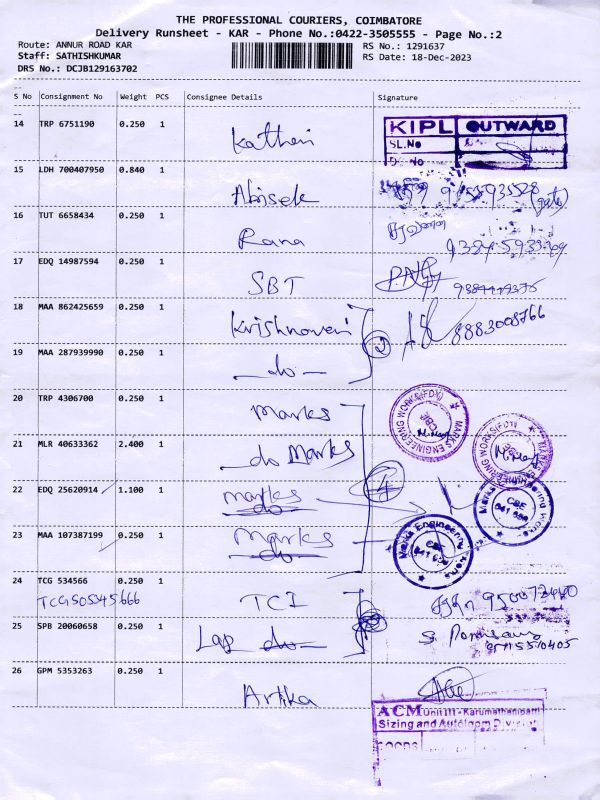 THE PROFESSIONAL COURIERS, COIMBATORE
Delivery Runsheet - KAR - Phone No.:0422-3505555 - Page No.:2
Route: ANNUR ROAD KAR RS No.: 1291637
Staff: SATHISHKUMAR RS Date: 18-Dec-2023
DRS No.: DCJB129163702
S No Consignment No Weight PCS Consignee Details Signature
14 TRP 6751190 0.250 1 KIPL OUTWARD
SL.No
15 LDH 700407950 0.840 1 Abisek (gate)
16 TUT 6658434 0.250 1 Rana
17 EDQ 14987594 0.250 1 SBT
18 MAA 862425659 0.250 1 Krishnaveni 2 8883008766
19 MAA 287939990 0.250 1 do
20 TRP 4306700 0.250 1 Marks MARKS ENGINEERING WORKS(FDY) CBE
21 MLR 40633362 2.400 1 do Marks 4
22 EDQ 25620914 1.100 1 marks do CBE 641 659
23 MAA 107387199 0.250 1 marks do Marks Engineering Works CBE
24 TCG 534566 0.250 1 TCI
TCG505345666
25 SPB 20060658 0.250 1 Lap do
26 GPM 5353263 0.250 1 Artika
ACM Unit III - Karumathampatti
Sizing and Autoloom Division
GOODS